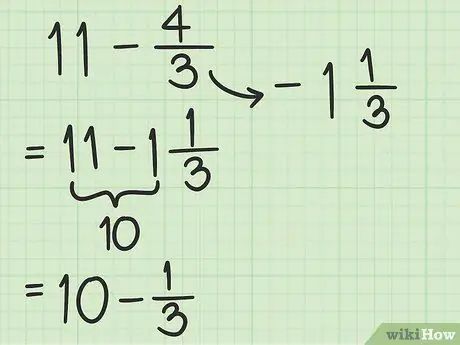 11 − 4/3 → − 1 1/3
= 11 − 1 1/3
10
= 10 − 1/3
wikiHow